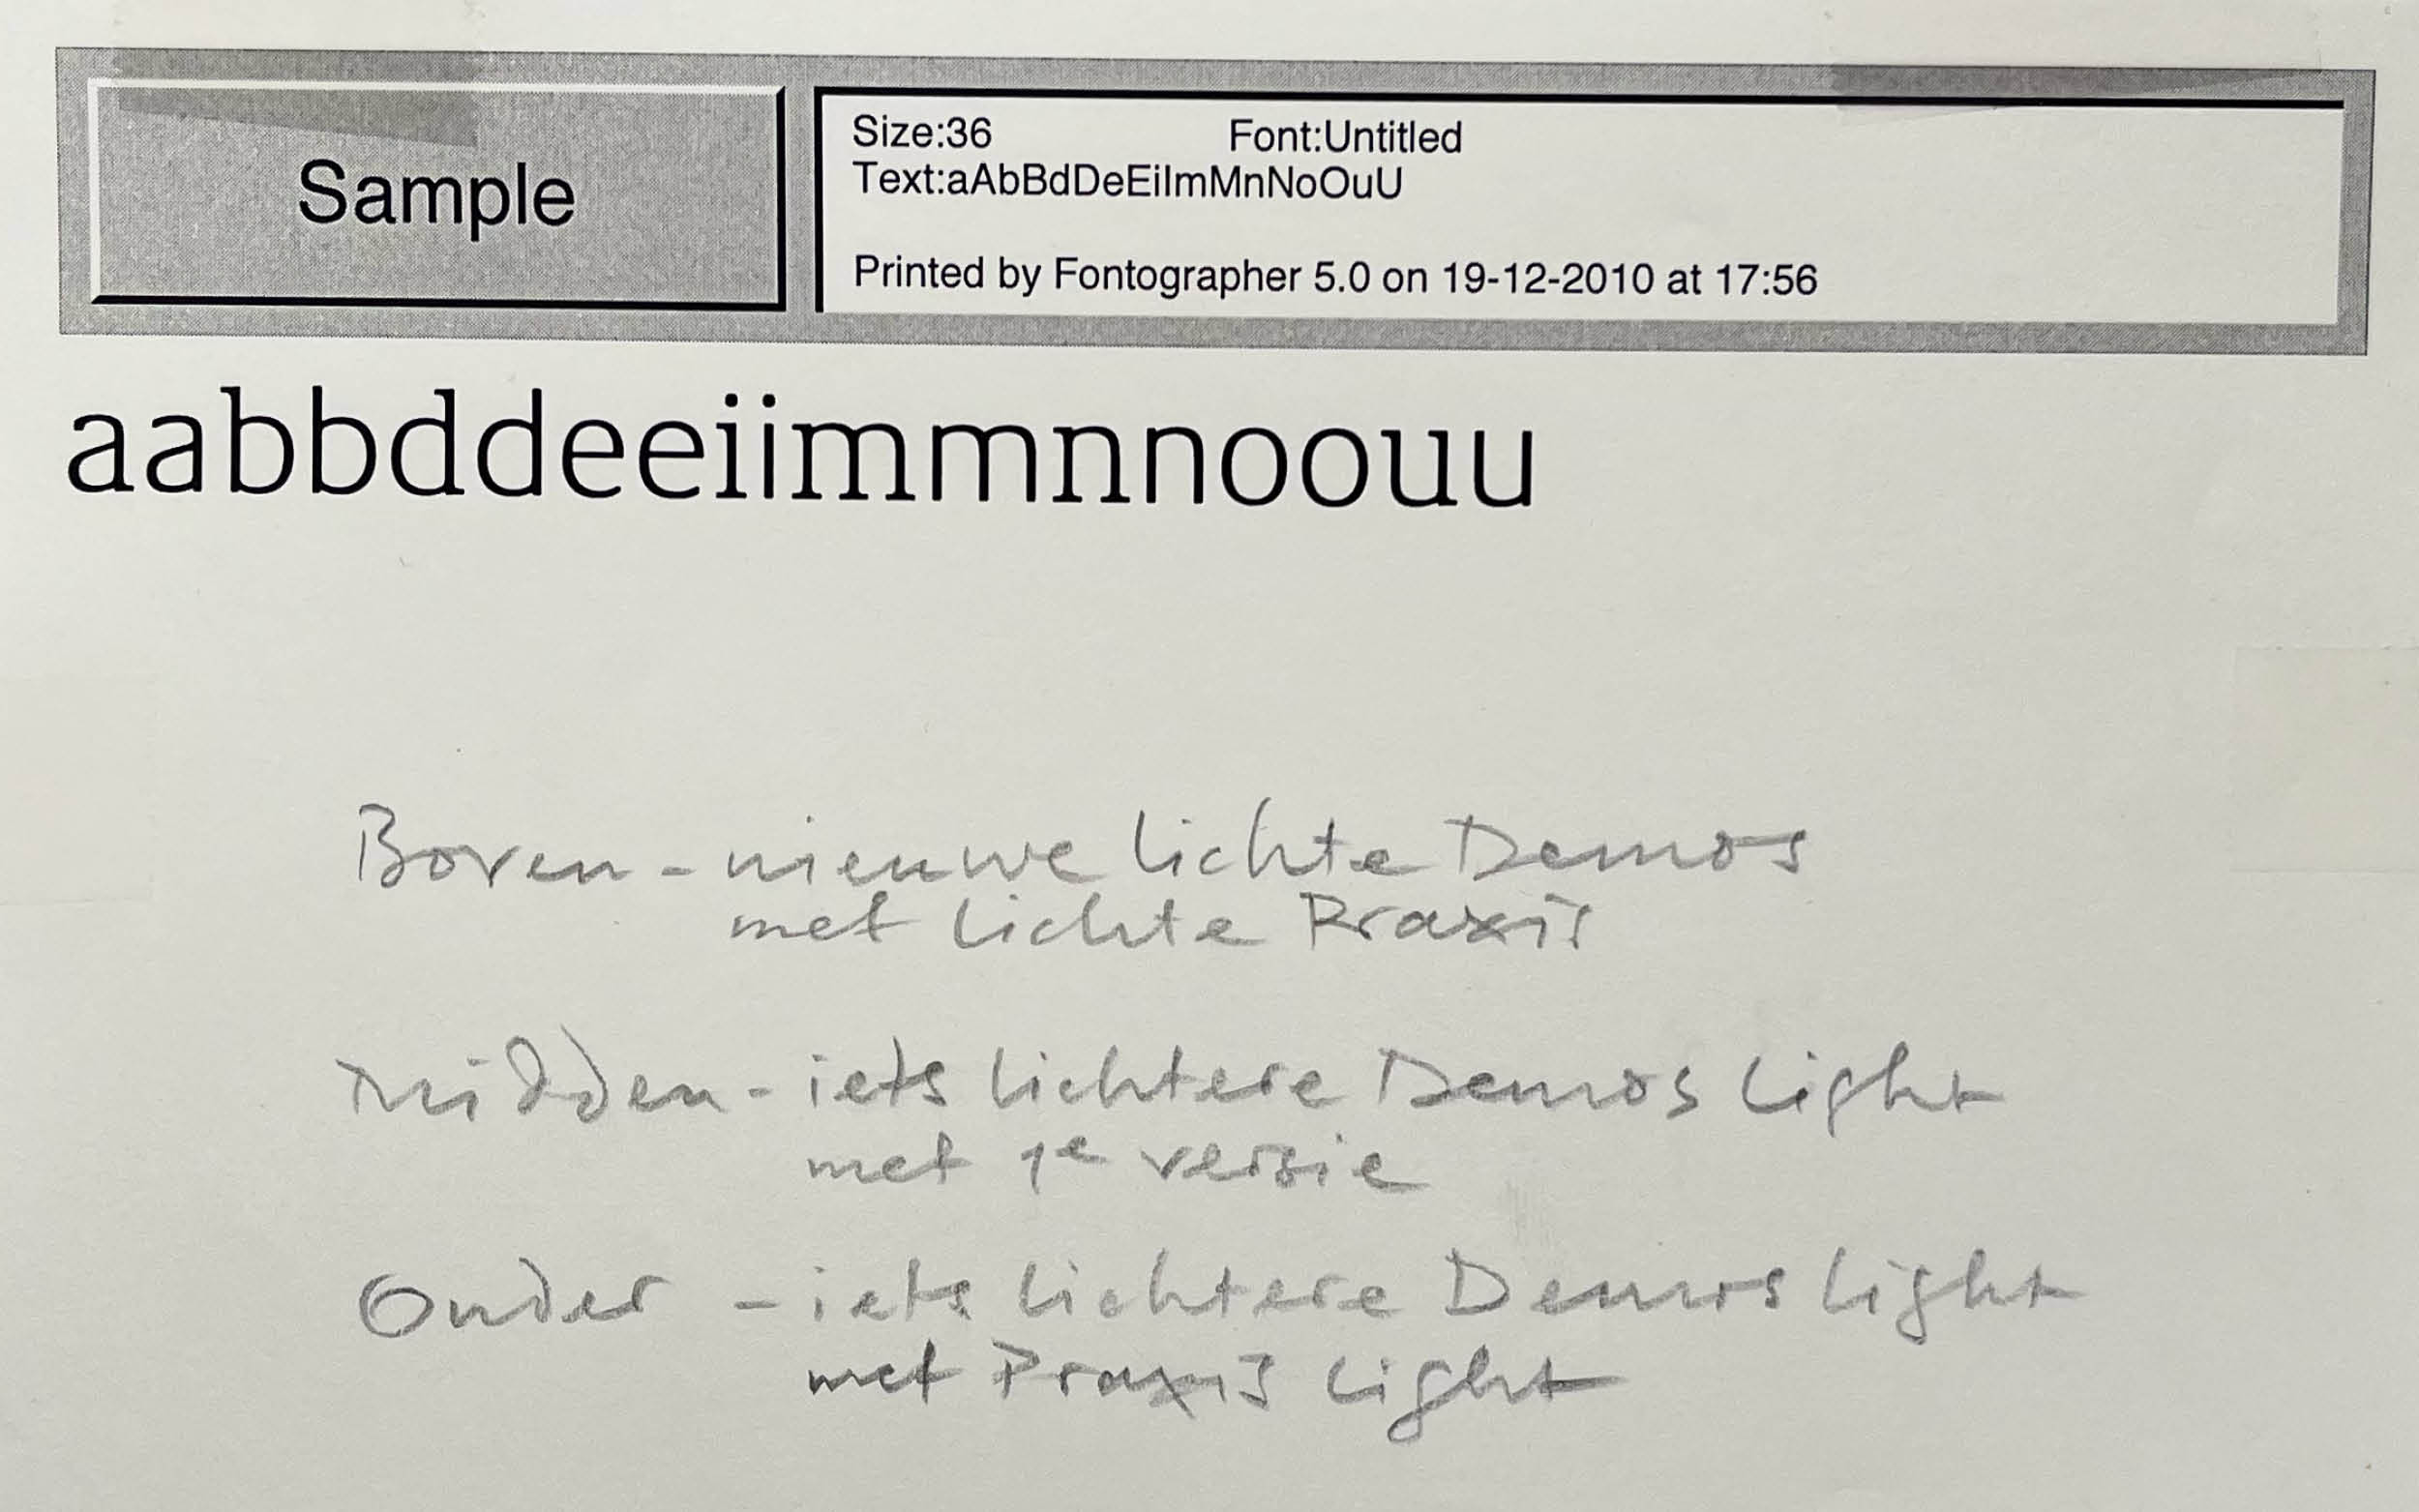 Sample
Size:36 Font:Untitled
Text:aAbBdDeEiImMnNoOuU
Printed by Fontographer 5.0 on 19-12-2010 at 17:56
aabbddeeiimmnnoouu
Boven - nieuwe lichte Demos
met lichte Praxis
Midden - iets lichtere Demos Light
met 1e versie
Onder - iets lichtere Demos Light
met Praxis Light